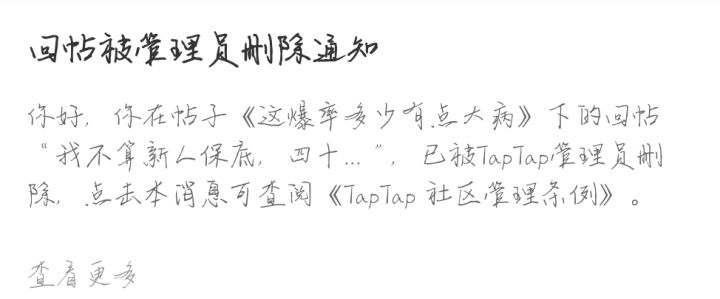 回帖被管理员删除通知
你好，你在帖子《这爆率多少有点大病》下的回帖
“我不算新人保底，四十...”，已被TapTap管理员删
除，点击本消息可查阅《TapTap 社区管理条例》。
查看更多